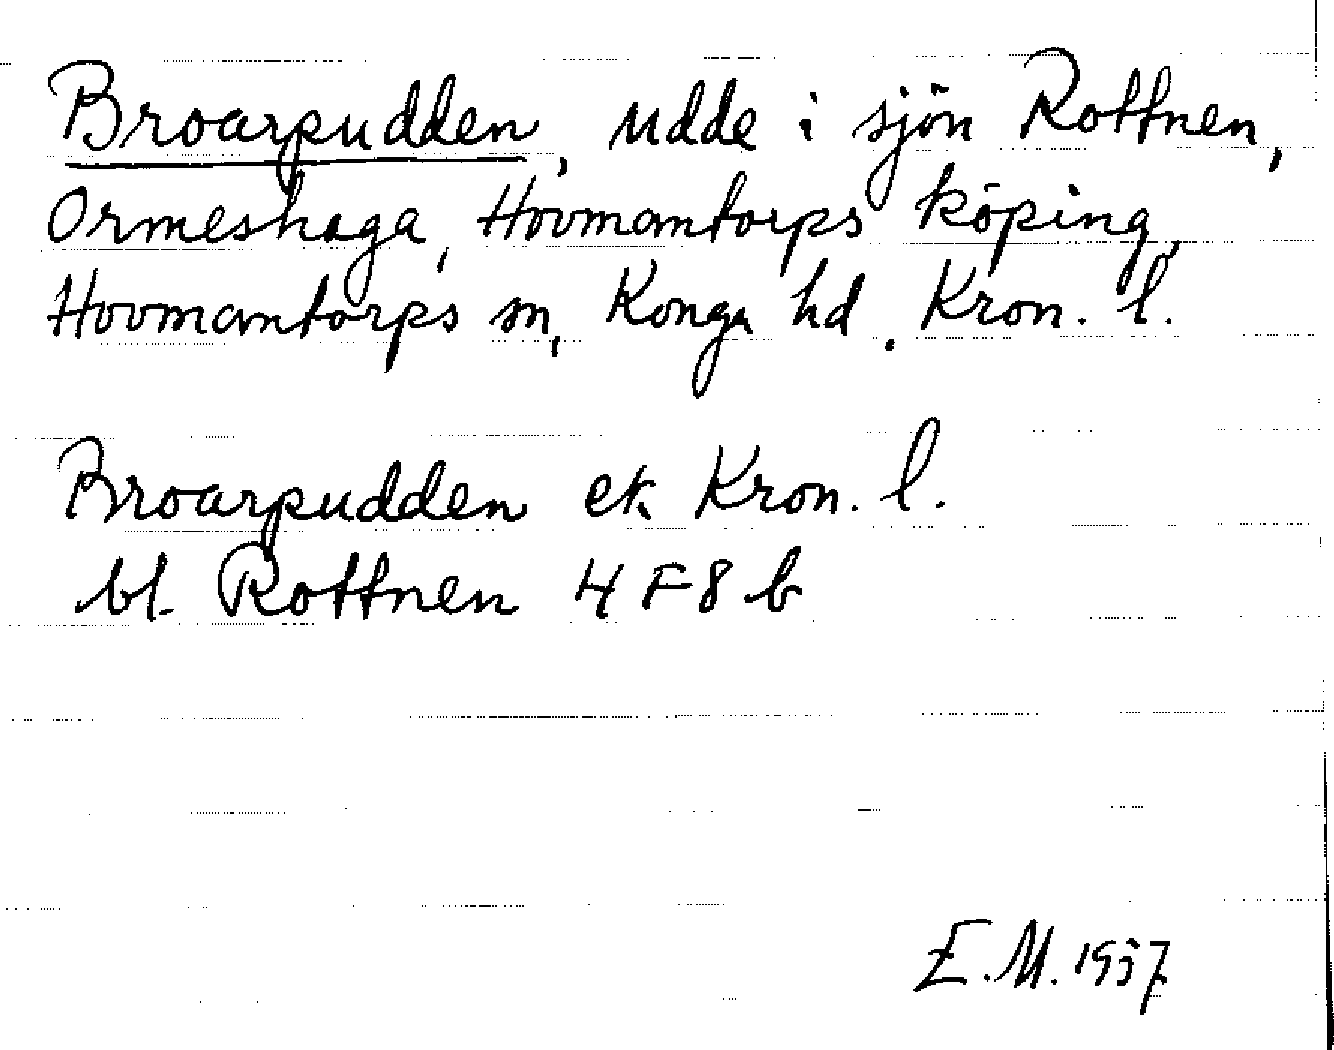 Broarpudden, udde i sjön Rottnen,
Ormeshaga, Hovmantorps köping,
Hovmantorps sn, Konga hd. Kron. l.
Broarpudden ek Kron. l.
bl. Rottnen 4 F 8 b
E.M. 1957